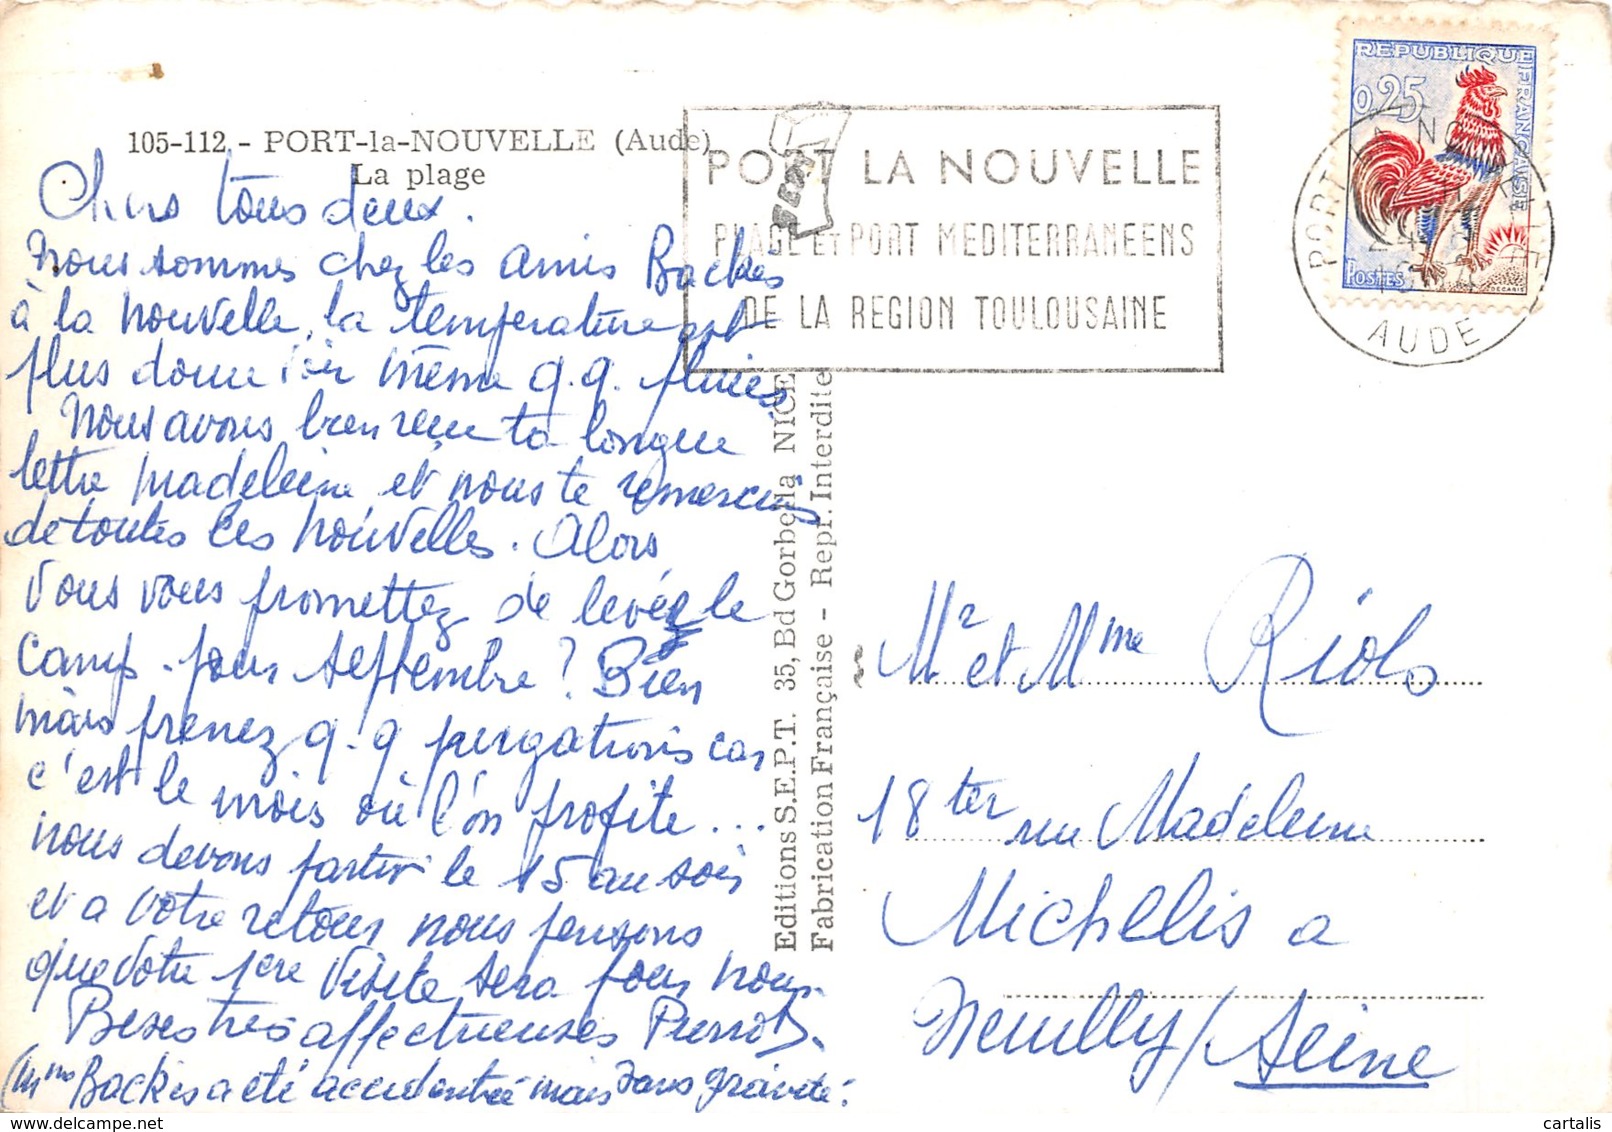 105-112 - PORT-la-NOUVELLE (Aude)
La plage
Chers tous deux.
Nous sommes chez les amis Backés
à la Nouvelle, la température est
plus douce même q.q. pluies
Nous avons bien reçu ta longue
lettre Madeleine et nous te remercions
de toutes ces nouvelles. Alors,
Vous vous promettez de levée le
Camp pour septembre ? Bien
mais prenez q.q purgations car
c'est le mois où l'on profite...
nous devons partir le 15 au soir
et a votre retour nous pensons
que votre 1ère visite sera pour nous.
Bises très affectueuses Pierrot
(Mme Backés a été accidentée mais sans gravité.
Editions S.E.P.T. 35, Bd Gorbella NICE
Fabrication Française - Repr. Interdite
PORT LA NOUVELLE
PLAGE ET PORT MEDITERRANEENS
DE LA REGION TOULOUSAINE
REPUBLIQUE FRANÇAISE
0,25
POSTES
DECARIS
PORT LA NOUVELLE
AUDE
Mr et Mme Riols
18 ter rue Madeleine
Michelis a
Neuilly/Seine
cartalis